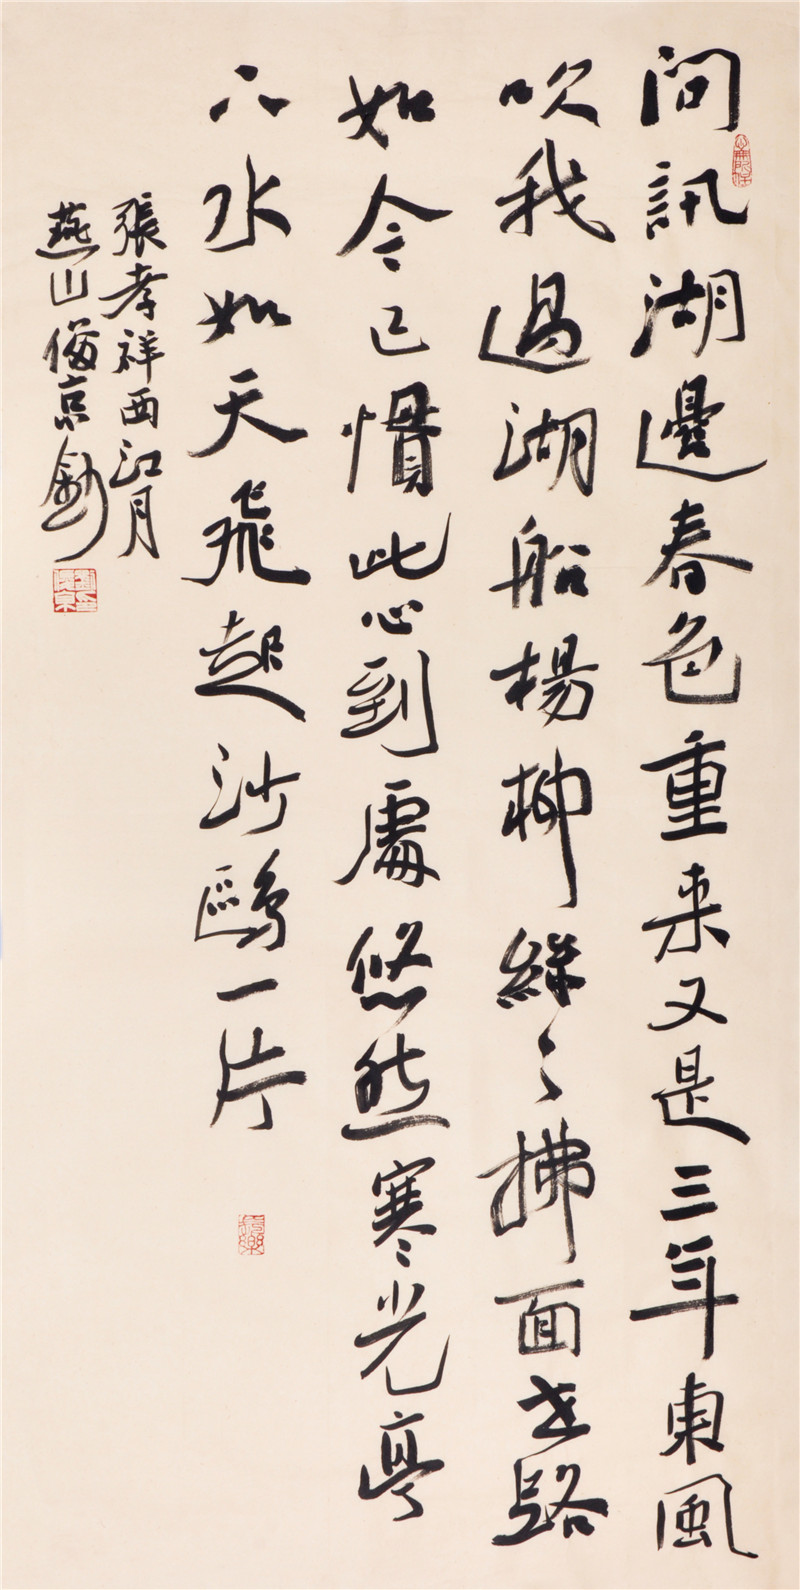 問訊湖邊春色重来又是三年東風
吹我過湖船楊柳絲々拂面世路
如今已慣此心到處悠然寒光亭
下水如天飛起沙鷗一片
張孝祥西江月
燕山俊京